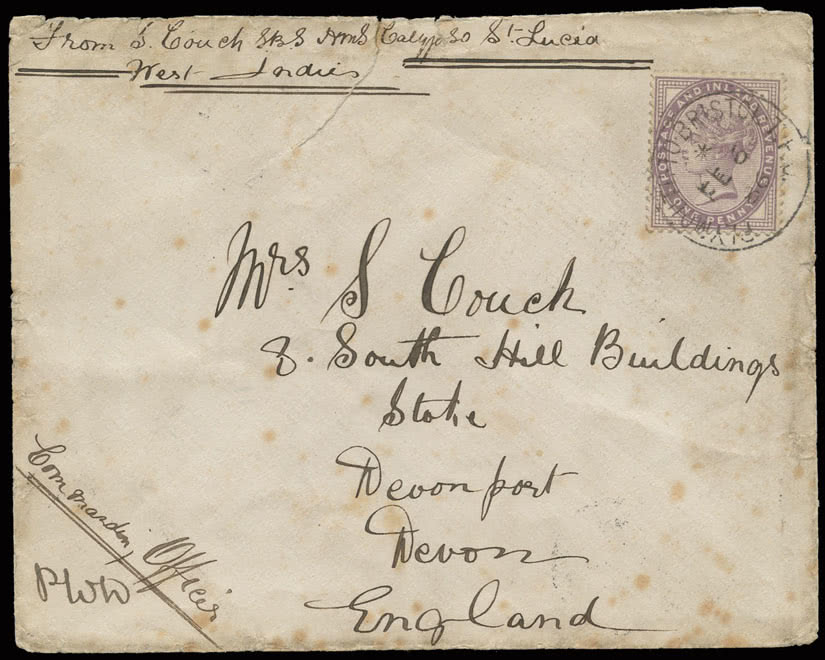 From S. Couch SBS HMS Calypso St. Lucia
West Indies
POSTAGE AND INLAND REVENUE
ONE PENNY
BRISTOL
FE 6
PLYM
Mrs S Couch
8. South Hill Buildings
Stoke
Devonport
Devon
England
Commanding Officer